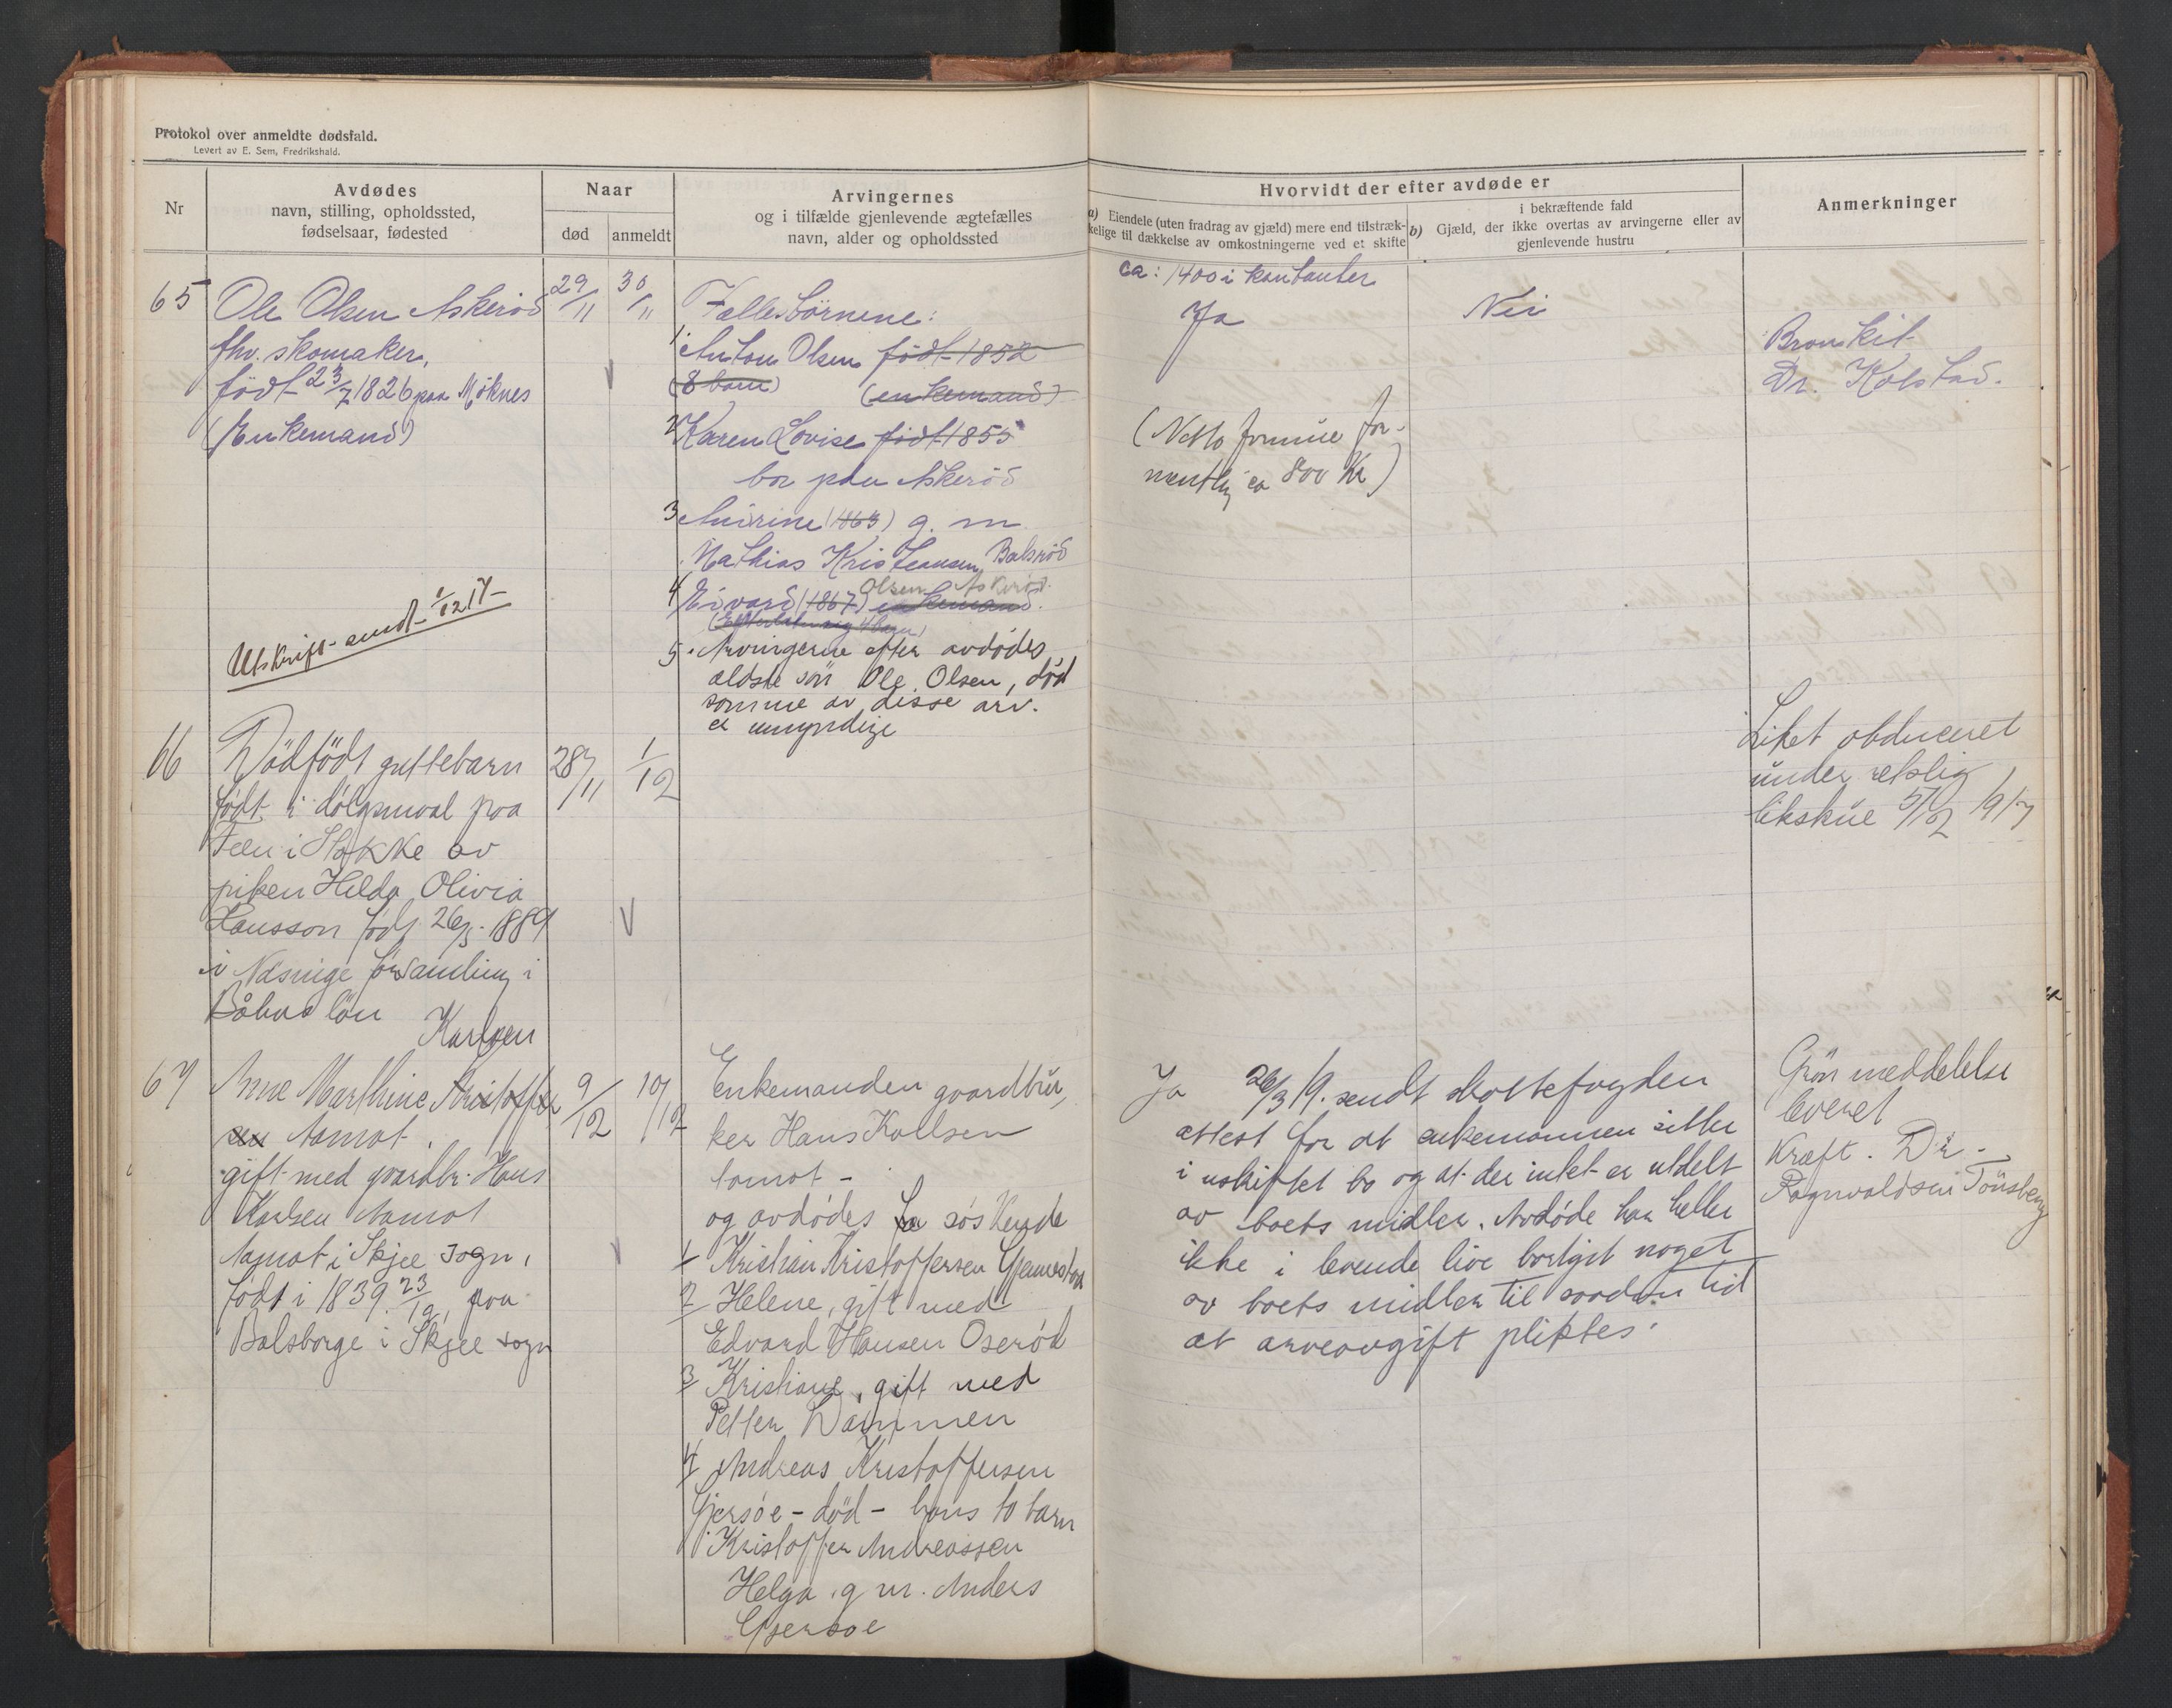 Protokol over anmeldte dødsfald.
Levert av E. Sem, Fredrikshald.
Nr
Avdødes
navn, stilling, opholdssted,
fødselsaar, fødested
Naar
død
anmeldt
Arvingernes
og i tilfælde gjenlevende ægtefælles
navn, alder og opholdssted
Hvorvidt der efter avdøde er
a) Eiendele (uten fradrag av gjæld) mere end tilstræk-
kelige til dækkelse av omkostningerne ved et skifte
b)
i bekræftende fald
Gjæld, der ikke overtas av arvingerne eller av
gjenlevende hustru
Anmerkninger
65
Ole Olsen Askerød
fhv. skomaker,
født 23/7 1826 paa Møknes
(Enkemand)
29/11
30/11
Fællesbørnene:
1 Anton Olsen født 1852
(8 barn) (enkemand)
2 Karen Lovise født 1855
bor paa Askerød
3 Andrine (1863) g. m.
Mathias Kristiansen Balsrød
Olsen Askerød.
4 Edvard (1867) enkemand.
5. Arvingerne efter avdødes
ældste søn Ole Olsen, død
somme av disse arv.
er umyndige
ca: 1400 i kontanter
Ja
(Netto formue for-
mentlig ca 800 Kr)
Nei
Bronkit
Dr. Kolstad.
Utskrift sendt 1/12 17
66
Dødfødt guttebarn
født i dølgsmaal paa
Feen i Stokke av
piken Hilda Olivia
Hansson født 26/3 1889
i Næsinge församling i
Båhus län
28/11
1/12
Liket obduceret
under retslig
likskue 5/12 1917
Karlsen
67
Anne Marthine Kristoffer
sen Aamot.
gift med gaardbr. Hans
Karlsen Aamot
Aamot i Skjee sogn,
født i 1839 23/12, paa
Balsborge i Skjee sogn
9/12
10/12
Enkemanden gaardbru,
ker Hans Kallsen
Aamot -
og avdødes søskende
1 Kristian Kristoffersen Gjennestad
2 Helene, gift med
Edvard Hansen Oserød
3 Kristiane, gift med
Petter Dammen
4 Andreas Kristoffersen
Gjersøe - død - hans to barn
Kristoffer Andreassen
Helga g m. Anders
Gjersøe
Ja
26/3 19. sendt skattefogden
attest for at enkemannen sitter
i uskiftet bo og at der intet er utdelt
av boets midler. Avdøde har heller
ikke i levende live bortgit noget
av boets midler til saadan tid
at arveavgift pliktes.
Grøn meddelelse
leveret
Kræft. Dr.
Ragnvaldsen Tønsberg